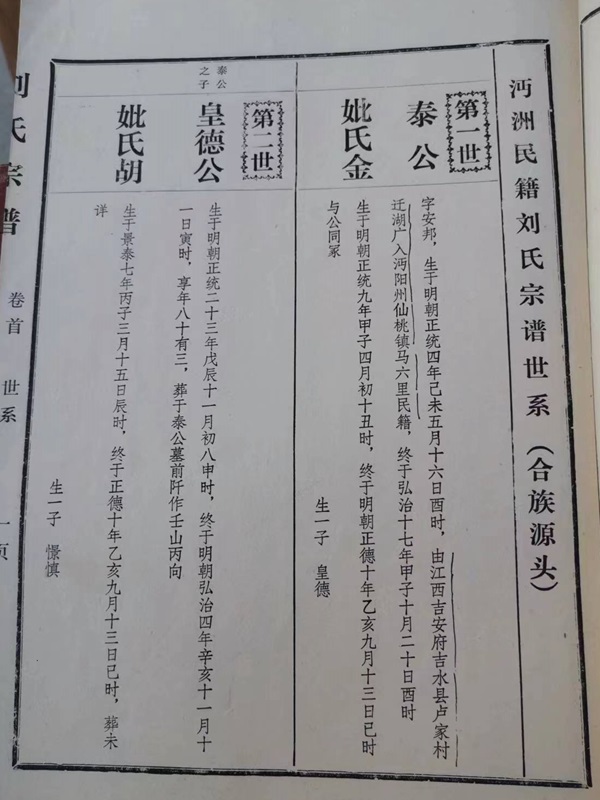 沔洲民籍刘氏宗谱世系（合族源头）
第一世
泰公
字安邦，生于明朝正统四年己未五月十六日酉时，由江西吉安府吉水县卢家村
迁湖广入沔阳州仙桃镇马六里民籍，终于弘治十七年甲子十月二十日酉时
妣氏金
生于明朝正统九年甲子四月初十丑时，终于明朝正德十年乙亥九月十三日巳时
与公同冢
生一子 皇德
第二世
泰公
之子
皇德公
生于明朝正统二十三年戊辰十一月初八申时，终于明朝弘治四年辛亥十一月十
一日寅时，享年八十有三，葬于泰公墓前阡作壬山丙向
妣氏胡
生于景泰七年丙子三月十五日辰时，终于正德十年乙亥九月十三日巳时，葬未
详
生一子 憬慎
刘氏宗谱
卷首
世系
一页